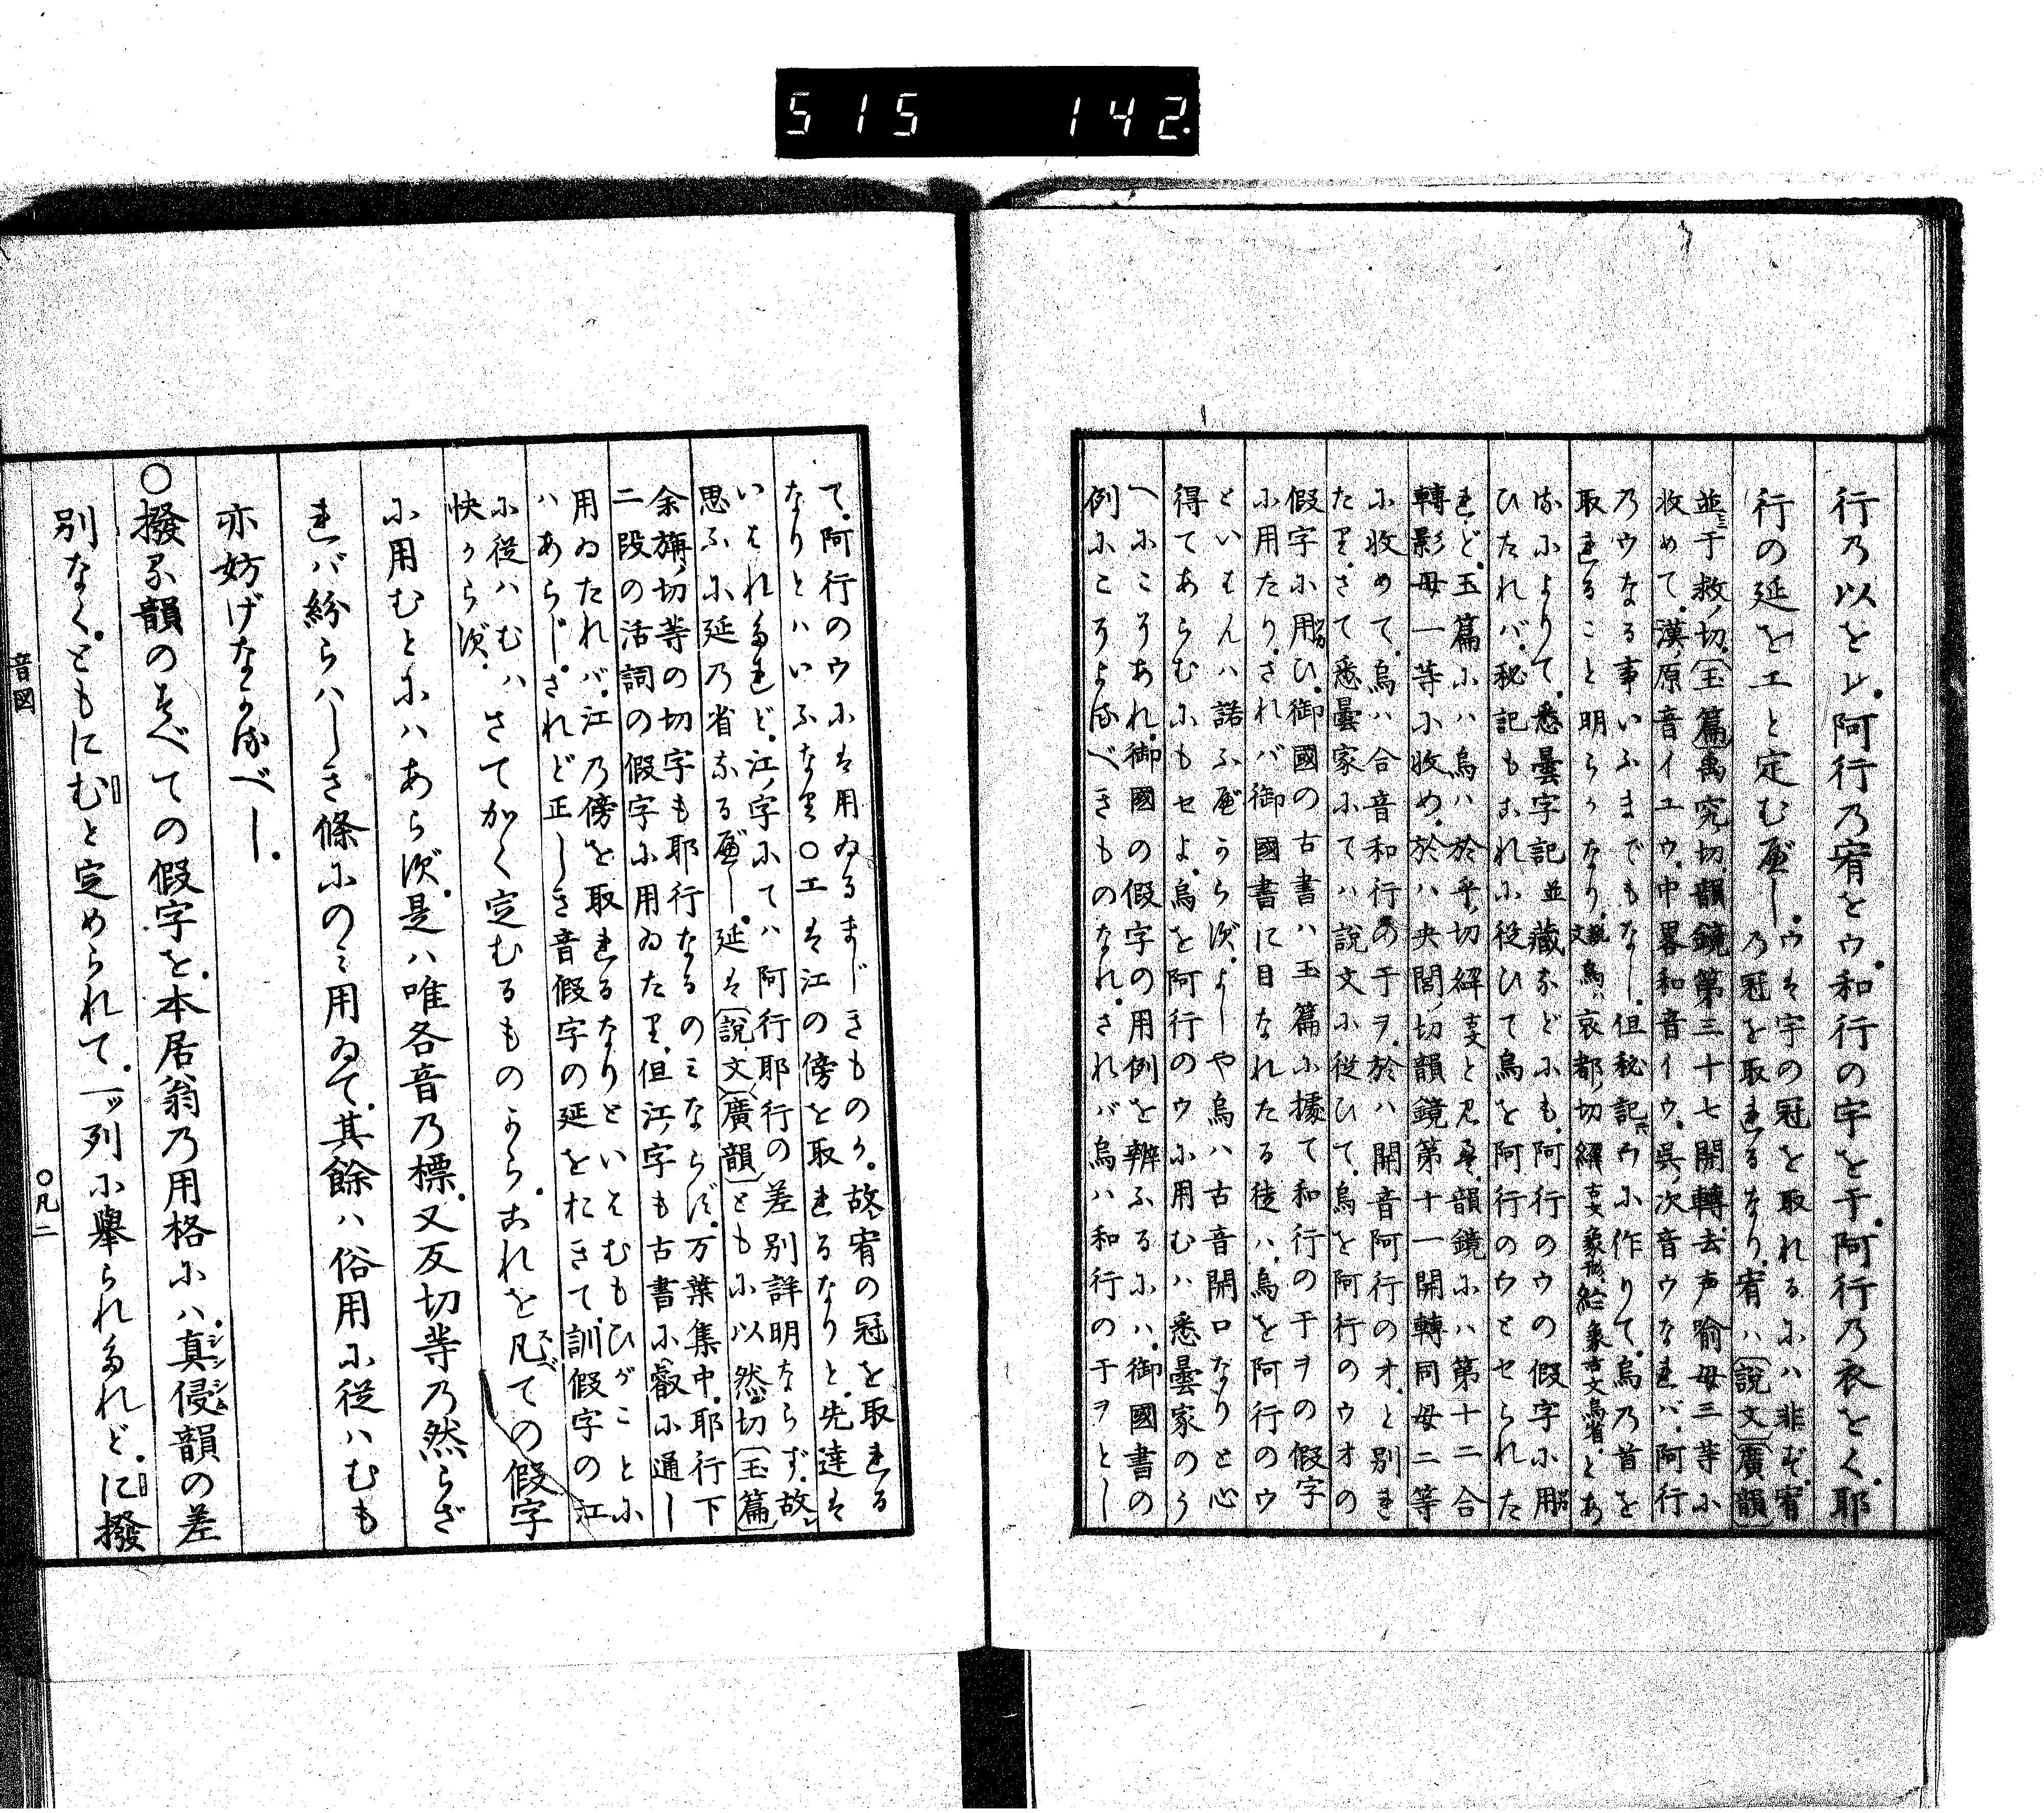 515 142.
行乃以をレ。阿行乃宥をウ。和行の宇を于。阿行乃衣をく。耶
行の延をエと定む邊し。
ウは宇の冠を取れるにハ非ず。宥
乃冠を取れるなり。宥ハ〔説文〕〔廣韻〕
並ニ于救ノ切。〔玉篇〕禹究ノ切。韻鏡第三十七開轉。去声喻母三等に
收めて。漢原音イエウ。中畧和音イウ。呉次音ウなれバ。阿行
乃ウなる事いふまでもなし。但秘記ニウに作りて。烏乃首を
取れること明らかなり。説文烏ハ哀都ノ切。繹古文象形絵象古文烏省。とあ
るによりて。悉曇字記並藏などにも。阿行のウの假字に用
ひたれバ。秘記もおれに從ひて烏を阿行のウとせられた
れど。玉篇にハ烏ハ於乎ノ切。繹古文と見え。韻鏡にハ第十二合
轉影母一等に收め。於ハ央閭ノ切韻鏡第十一開轉同母二等
に收めて。烏ハ合音和行の于ヲ。於ハ開音阿行のオ。と別れ
たり。さて悉曇家にてハ説文に從ひて。烏を阿行のウオの
假字に用ひ。御國の古書ハ玉篇に據て和行の于ヲの假字
に用たり。されバ御國書に目なれたる徒ハ。烏を阿行のウ
といはんハ諾ふ邊からず。よしや烏ハ古音開口なりと心
得てあらむにもせよ。烏を阿行のウに用むハ悉曇家のう
へにこそあれ。御國の假字の用例を辨ふるにハ。御國書の
例にこそよるべきものなれ。されバ烏ハ和行の于ヲとし
て。阿行のウには用ゐるまじきものか。故宥の冠を取れる
なりとハいふなり〇エは江の傍を取れるなりと。先達は
いはれたれど。江ノ字にてハ阿行耶行の差別詳明ならず。故
思ふに延乃省なる邊し。延は〔説文〕〔廣韻〕ともに以然ノ切〔玉篇〕
余旃ノ切等の切字も耶行なるのミならず。万葉集中。耶行下
二段の活詞の假字に用ゐたり。但江ノ字も古書に叡に通し
用ゐたれバ。江乃傍を取れるなりといはむもひがことに
ハあらじ。されど正しき音假字の延をおきて。訓假字の江
に從ハむハ
快からず。
さてかく定むるものから。おれを凡ての假字
に用むとにハあらず。是ハ唯各音乃標。又反切等乃然らざ
れバ紛らハしき條にのミ用ゐて。其餘ハ俗用に従ハむも
亦妨げなかるべし。
〇撥ル韻のすべての假字を。本居翁乃用格にハ。真侵韻の差
別なく。ともにむと定められて。一ッ列に舉られたれど。に撥
音図 〇凡二